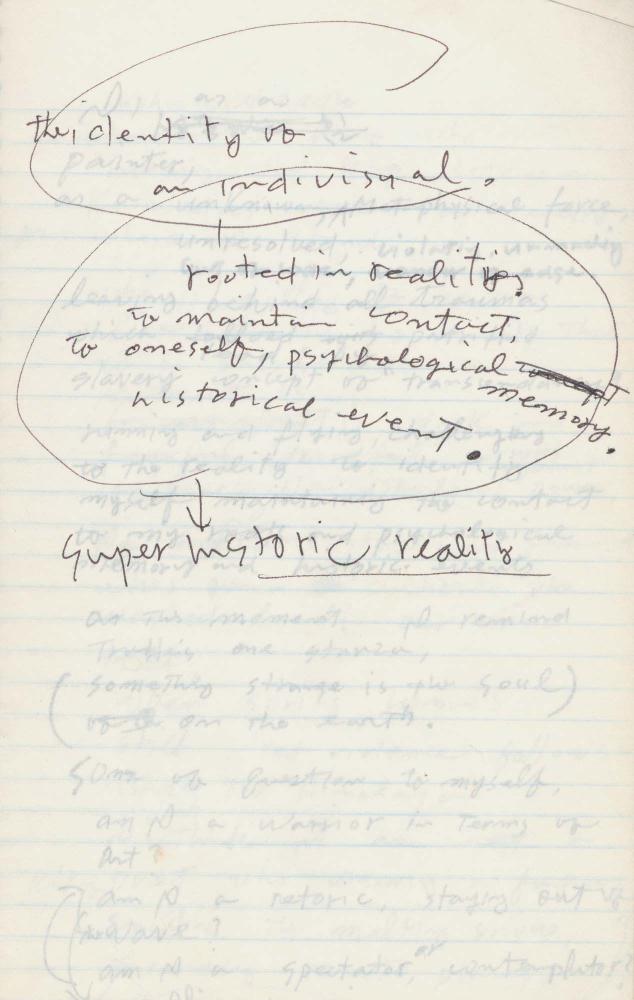 the identity of
an indivisual.
rooted in reality,
to maintain contact,
to oneself, psychological concept
memory.
historical event.
super historic reality
painter,
as a unknown, Metaphysical force,
unresolved, violate
leaving behind all traumas
slavery concept of "transcendency"
running and flying, challenging
to the reality to identify
myself maintaining the contact
to my and psychological
memory and historic events
at this moment I remind
one stanza,
(something strange is the soul)
on the earth.
some of question to myself,
am I a warrior in terms of
Art?
am I a retoric, staying out of
the wave?
am I a spectator, or contemplator?